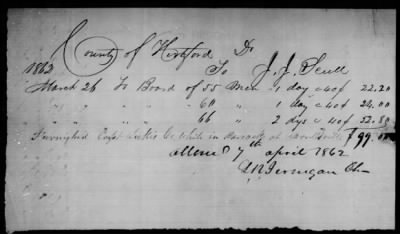 County of Hertford Dr
1862 To J. J. Scull
March 26 To Board of 55 Men 1 day @ 40¢ 22.20
" " " " 60 " 1 day @ 40¢ 24.00
" " " " 66 " 2 dys @ 40¢ 52.80
Furnished Capt while in Barracks at $99.00
allowed 7th april 1862
Jernigan Ch